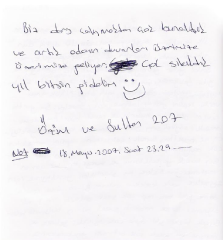 Biz ders çalışmaktan çok bunaldık
ve artık odanın duvarları üstümüze
üstümüze geliyor. Çok sıkıldık
yıl bitsin gidelim
ve Sultan 207
Not 18. Mayıs. 2007. Saat 23.29